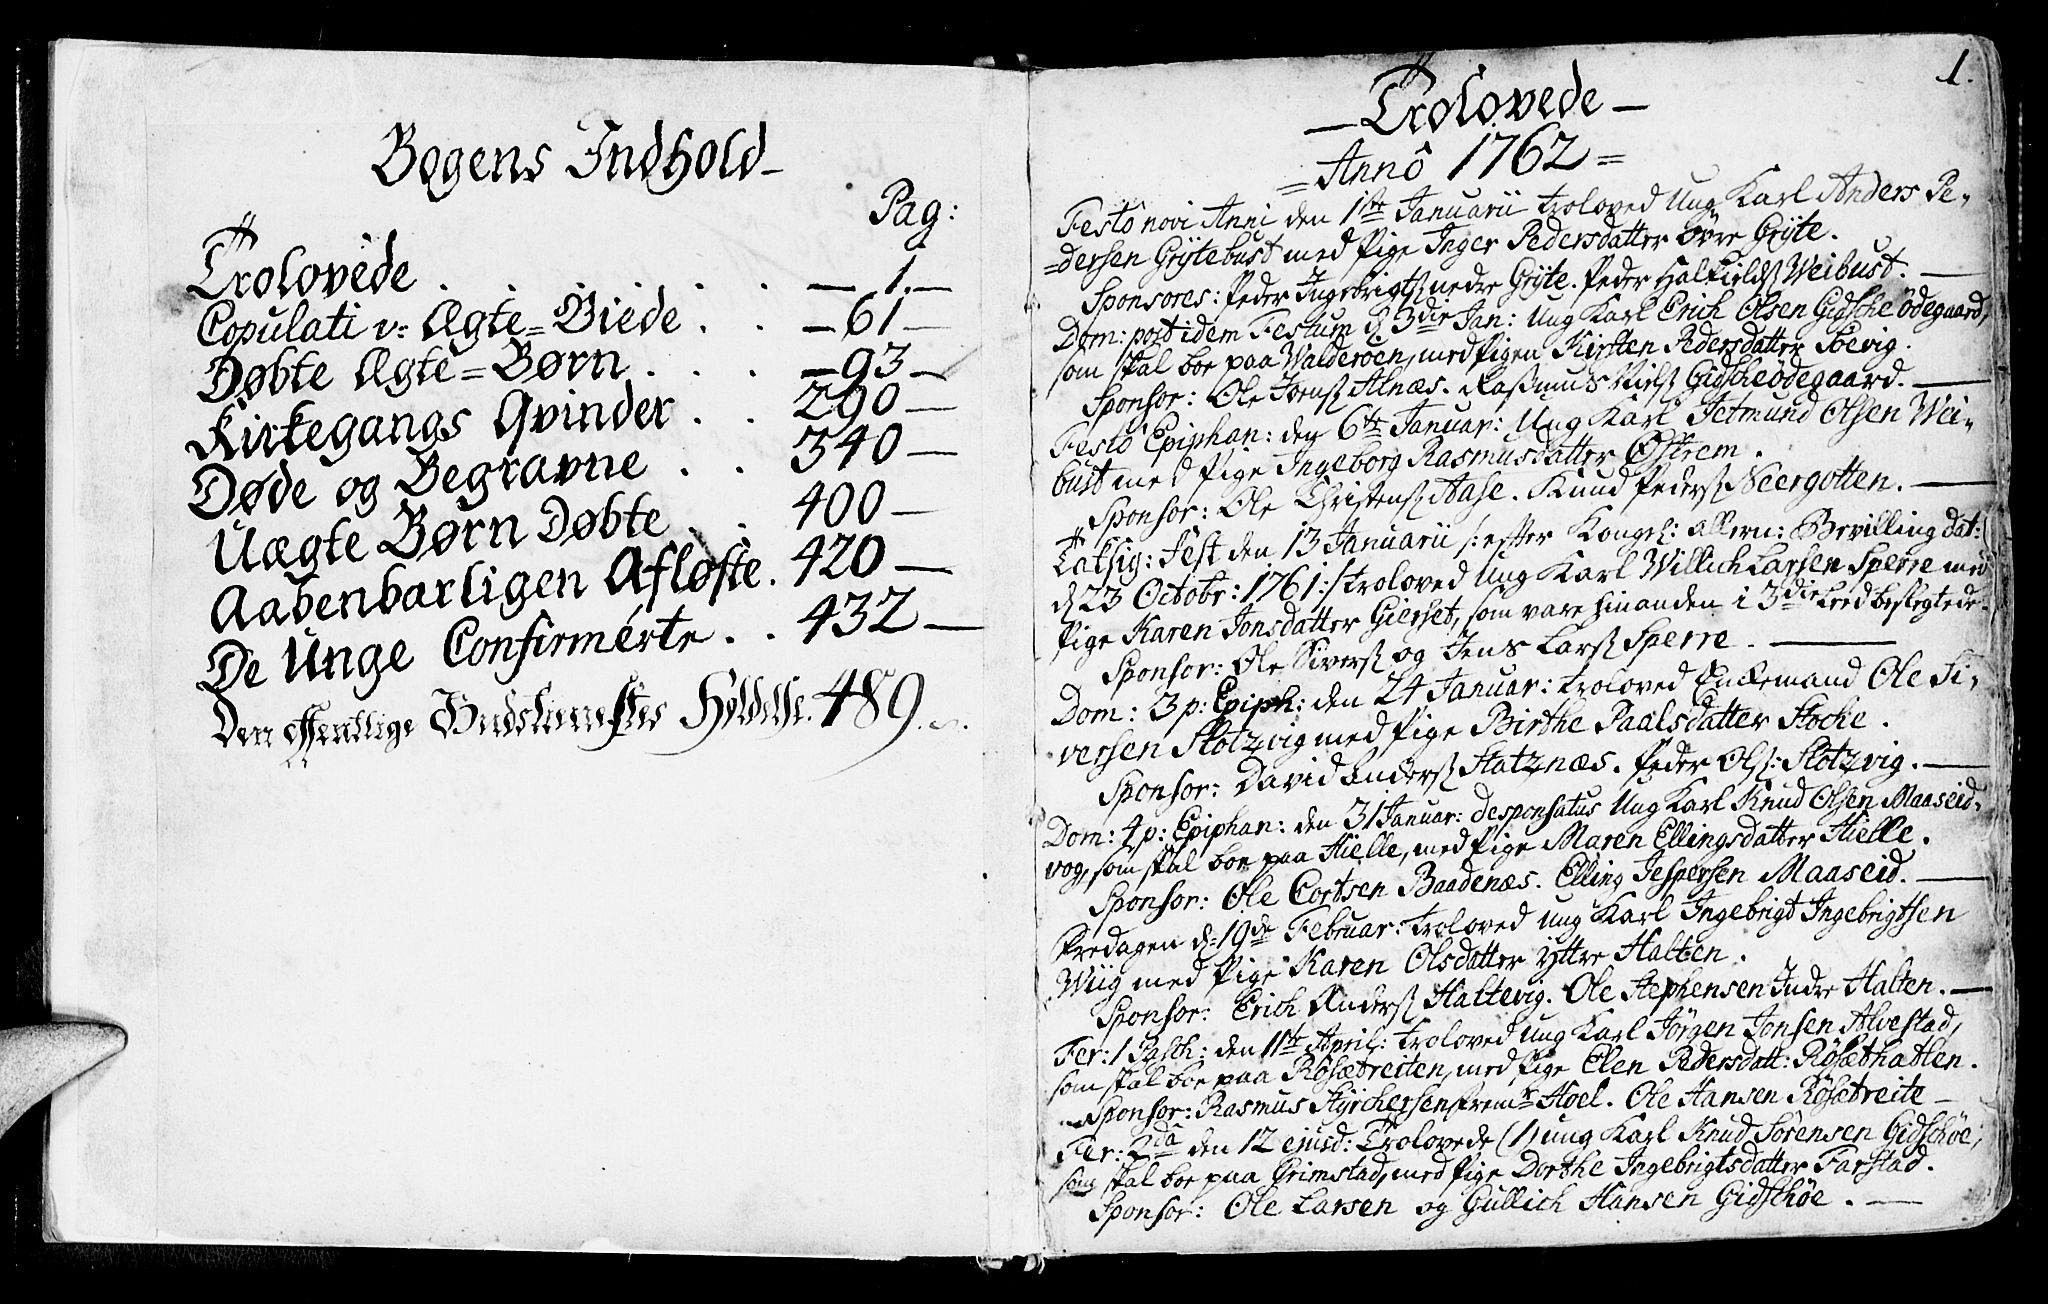 Bogens Indhold
Pag:
Trolovede . . . . . 1.
Copulati v: Ægte=Viede . . 61
Døbte Ægte=Børn . . . 93
Kirkegangs Qvinder . . 290
Døde og Begravne . . 340
Uægte Børn Døbte . . 400
Aabenbarligen Afløste . 420
De Unge Confirmerte . . 432
Den offentlige Gudstienestes Holdelse. 489.
1.
Trolovede
=Anno 1762=
Festo novi Anni den 1ste Januarii troloved Ung Karl Anders Pe-
=dersen Grytebust med Pige Inger Pedersdatter Övre Gryte.
Sponsores: Peder Ingebrigts. nedre Gryte. Peder Halkields. Weibust.
Dom: post idem Festum d. 3die Jan: Ung Karl Erich Olsen Gidsche Ödegaard,
som skal boe paa Walderöen, med Pigen Kirsten Pedersdatter Soevig.
Sponsor: Ole Jens. Alnæs. Rasmus Niels. Gidscheödegaard.
Festo Epiphan: den 6te Januar: Ung Karl Jetmund Olsen Wei-
bust med Pige Ingeborg Rasmusdatter Östrem.
Sponsor: Ole Christens. Aase. Knud Peders. Neergotten.
Taksig: Fest den 13 Januarii /: efter Kongel: allern: Bevilling dat:
d. 23 Octobr: 1761 :/ troloved Ung Karl Willich Larsen Sperre med
Pige Karen Jonsdatter Gierset, som vare hinanden i 3die Leed beslegtede.
Sponsor: Ole Sivers. og Jens Lars. Sperre.
Dom: 3 p: Epiph: den 24 Januar: troloved Enkemand Ole Si-
versen Slotzvig med Pige Birthe Paalsdatter Hocke.
Sponsor: David Anders. Statznæs. Peder Ols: Slotzvig.
Dom: 4 p: Epiphan: den 31 Januar: desponsatus Ung Karl Knud Olsen Maaseid-
vog, som skal boe paa Hielle, med Pige Maren Ellingsdatter Hielle.
Sponsor: Ole Cortsen Baadenæs. Elling Jespersen Maaseid.
Fredagen d: 19de Februar: troloved ung Karl Ingebrigt Ingebrigtsen
Wiig med Pige Karen Olsdatter Yttre Halten.
Sponsor: Erich Anders. Haltevig. Ole Stephensen Indre Halten.
Fer: 1 Pasch: den 11te April: troloved Ung Karl Jörgen Jonsen Alvestad,
som skal boe paa Rösætreiten, med Pige Elen Pedersdatt: Rösethatlen.
Sponsor: Rasmus Styrchersen Hoel. Ole Hansen Rösætreite
Fer: 2da den 12 ejusd: Trolovede (1) ung Karl Knud Sörensen Gidschöe,
som skal boe paa Grimstad, med Pige Dorthe Ingebrigtsdatter Farstad.
Sponsor: Ole Larsen og Gullich Hansen Gidschöe.